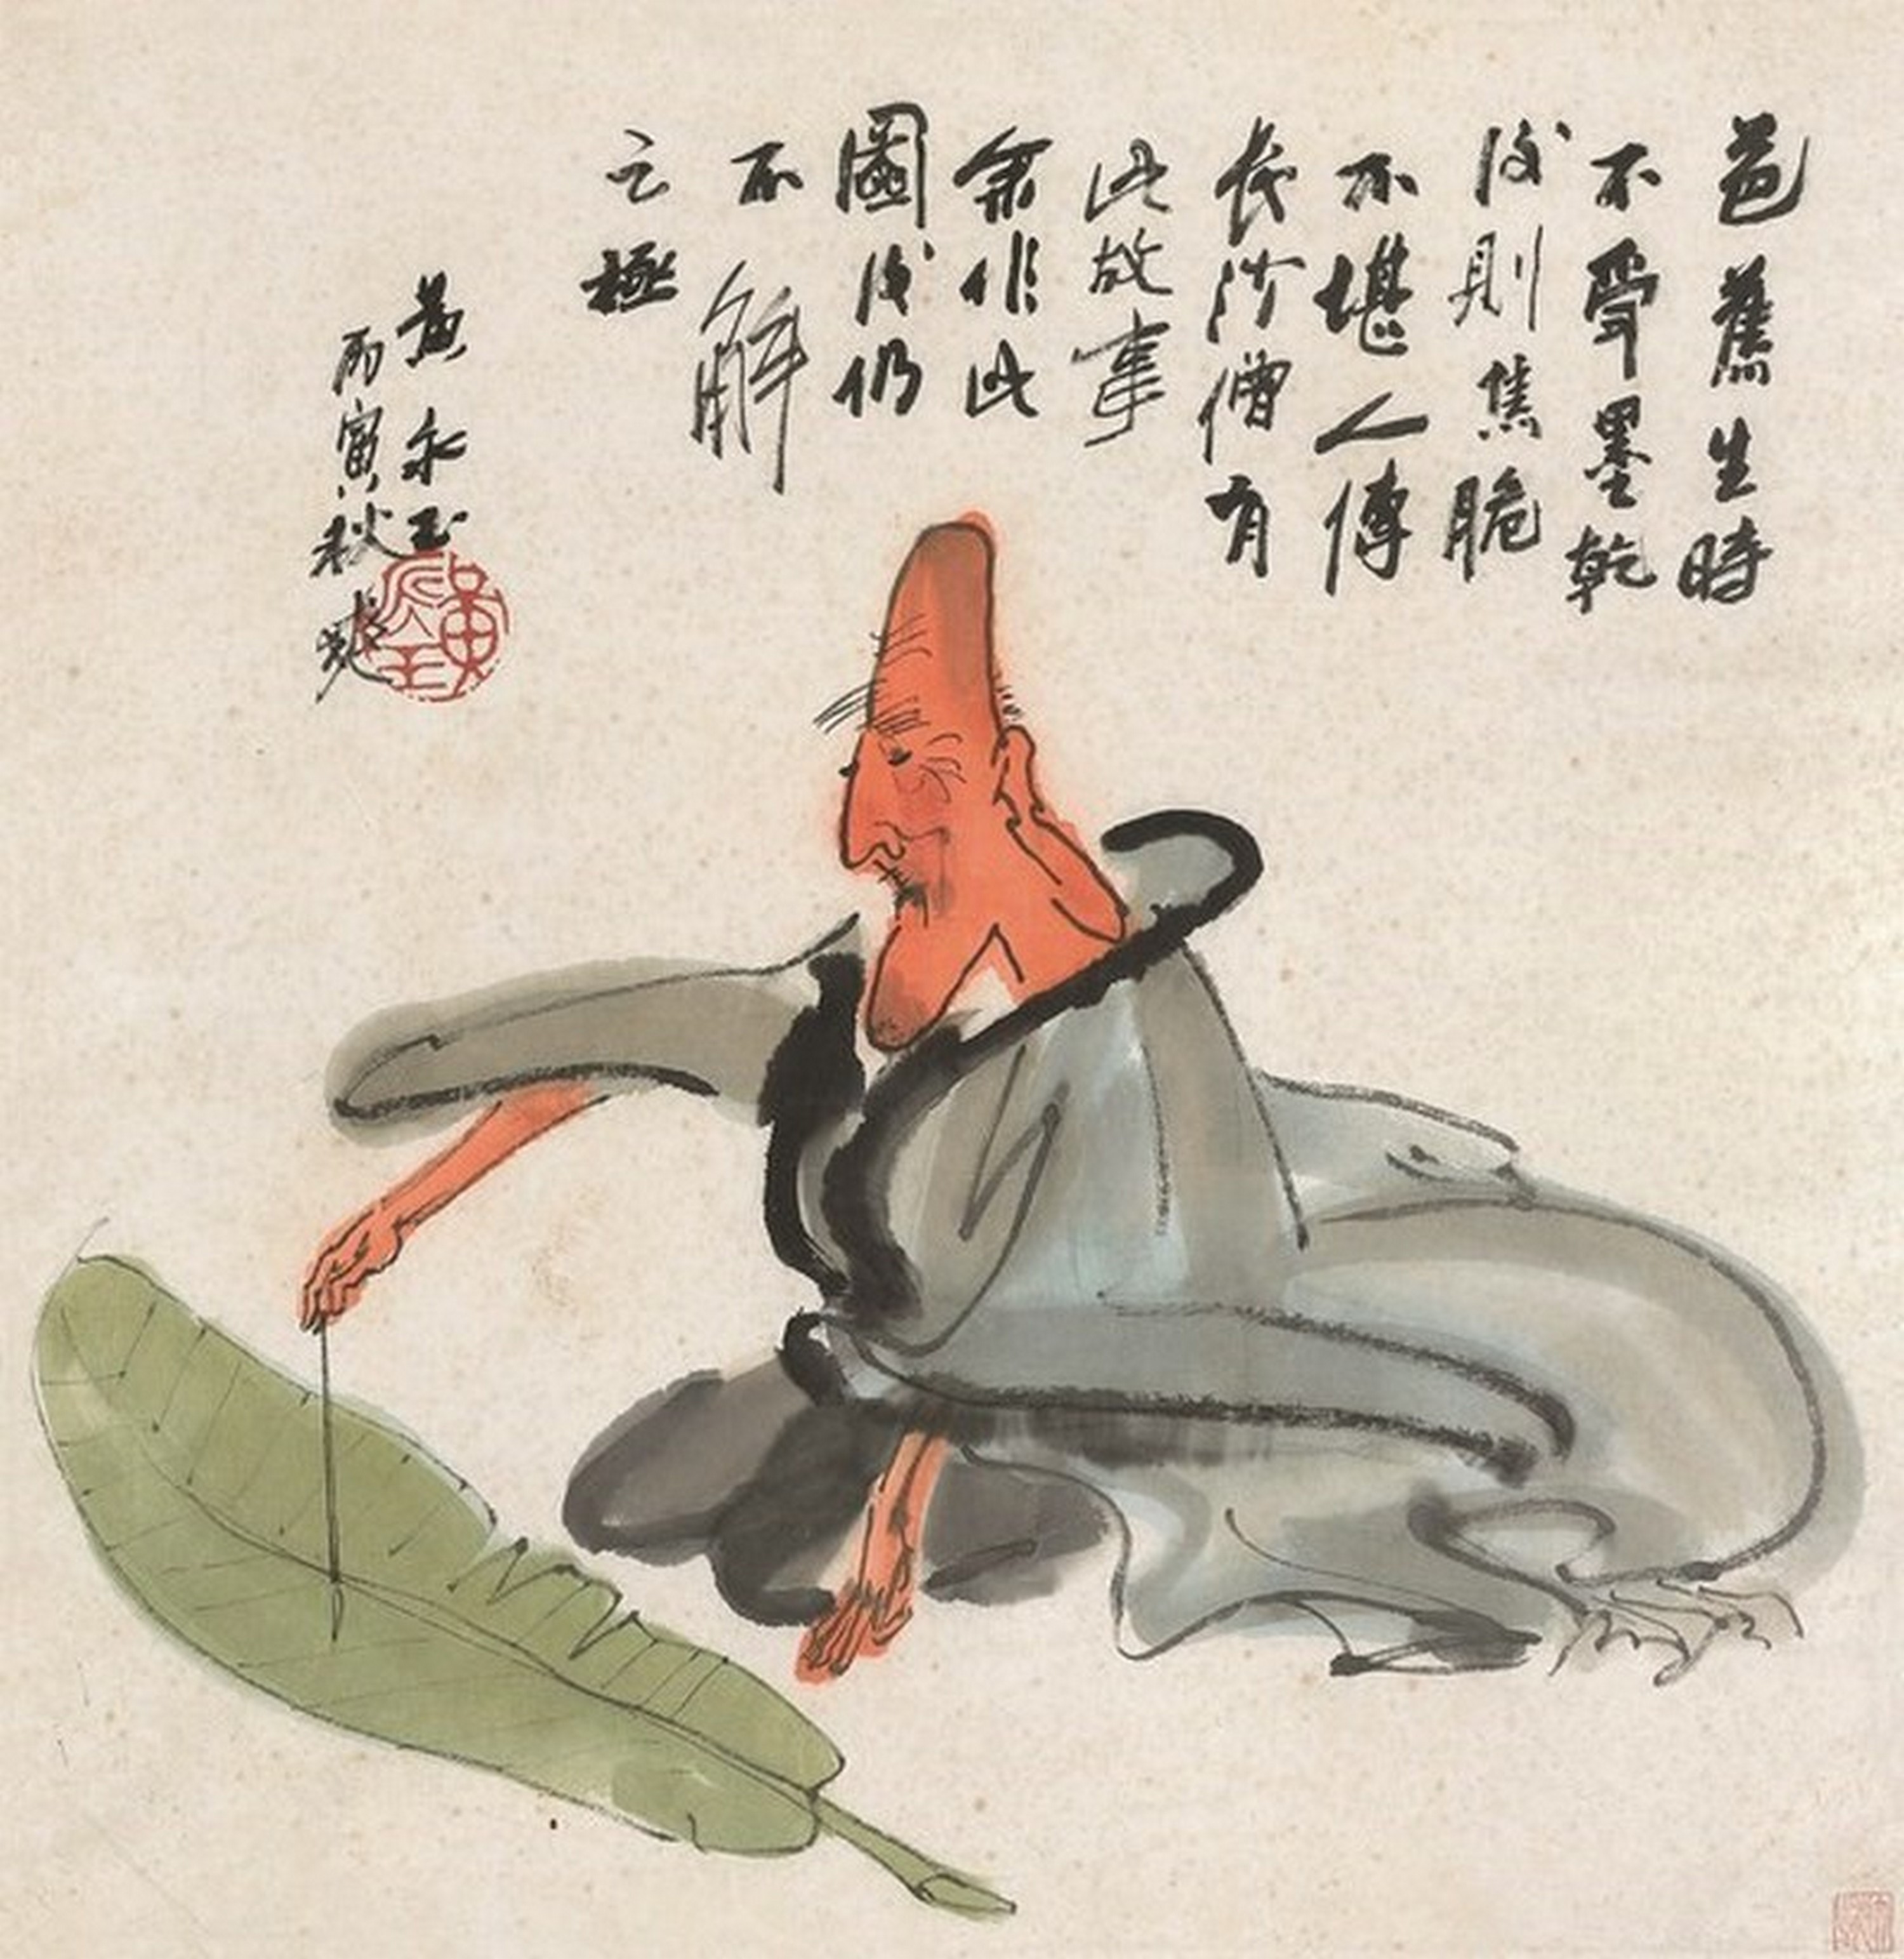 芭蕉生時
不受墨乾
後則焦脆
不堪人傳
長沙僧有
此故事
余作此
圖後仍
不解
之極
黃永玉
丙寅秋
黃永玉